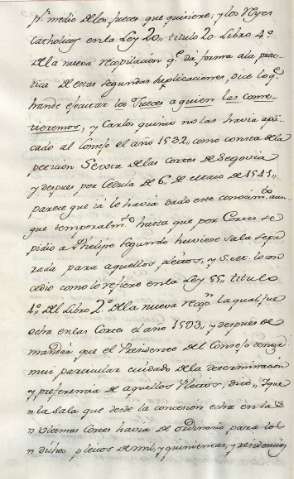 pr. medio de los Jueces que quisiere, y los Reyes
Catholicos en la Ley 20. titulo 20 Libro 4º
de la nueva recopilacion qe. da forma á la prac-
tica de estas segundas suplicaciones, dice lo qe.
hande efectuar los Jueces a quien las come-
tieremos, y Carlos quinto no las havia apli-
cado al Consejo el año 1532, como consta de la
peticion Severa de las Cortes de Segovia
y despues por Cedula de 6 de enero de 1541,
parece que já le havia dado este conocimto. aun
que temporalmte. hasta que por Cortes se
pidio a Phelipe segundo huviese sala sepa-
rada para aquellos pleitos, y se le con-
cedio como lo refiere en la Ley 55 titulo
4º del Libro 2º de la nueva recopn. la qual fue
echa en las Cortes el año 1593, y despues de
mandar que el Presidente del Consejo tenga
mui particular cuidado de la determinacion
y preferencia de aquellos Pleitos, dice, Y que
la sala que desde la concesion echa en las
ultimas Cortes havia de ordinario para los
dichos pleitos de mil, y quinientas, y residencias